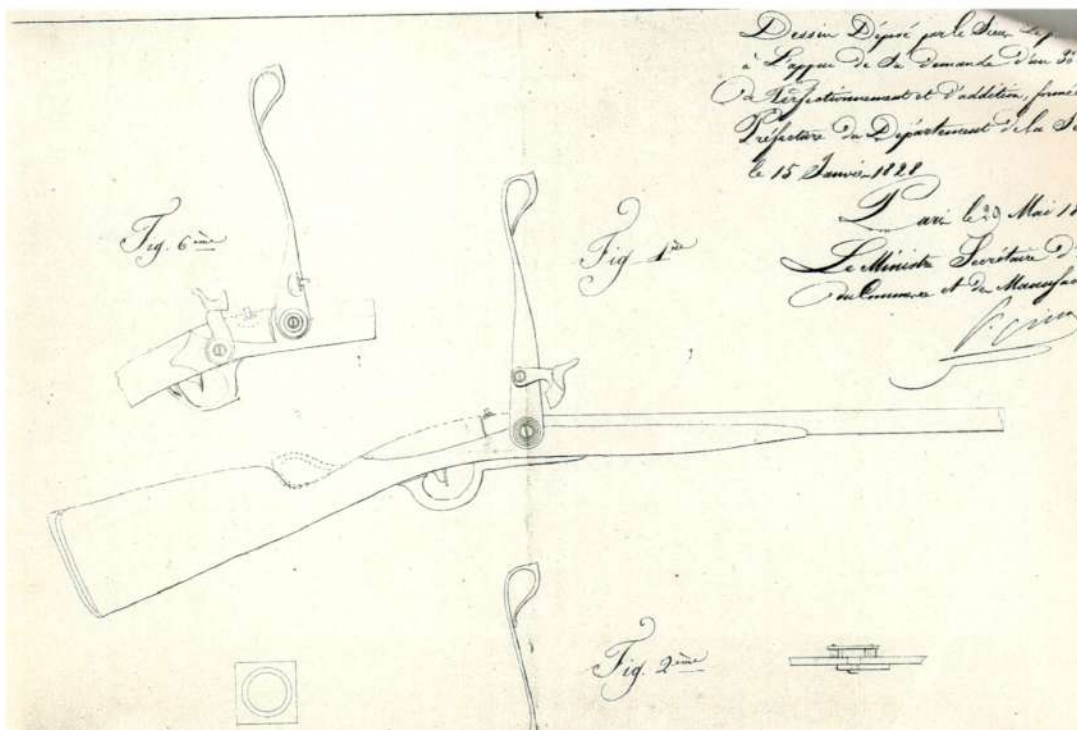 Dessin Déposé par le Sieur
à L'appui de Sa demande d'un
de Perfectionnement et d'addition, formée
Préfecture du Département de la
le 15 Janvier 1828
Paris le 29 Mai
Le Ministre Secrétaire d'
du Commerce et des
Fig. 6ème
Fig 1ère
Fig. 2ème